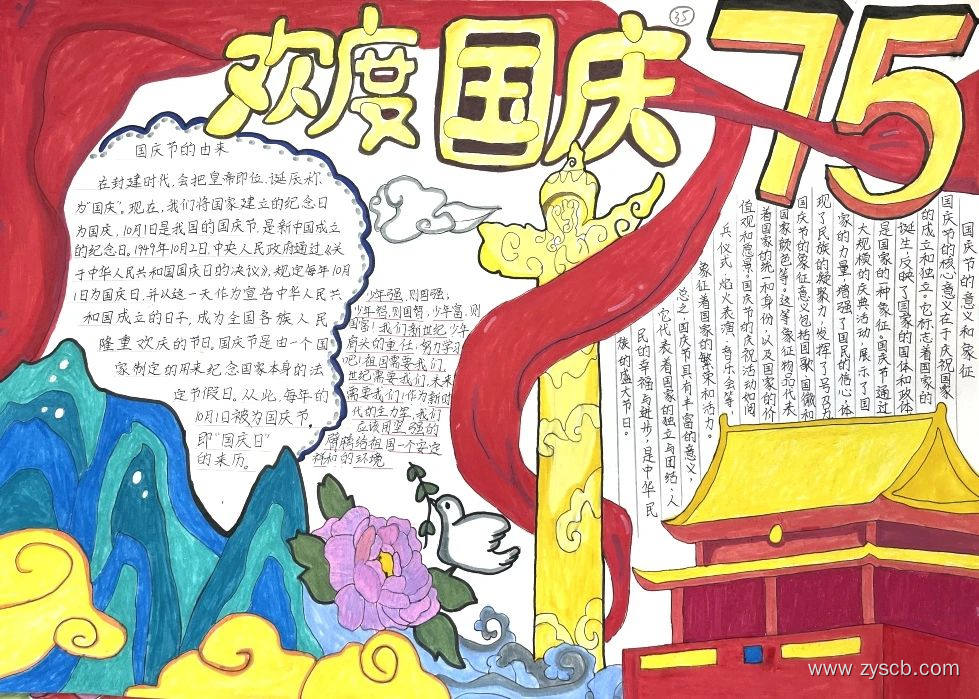 欢度国庆
75
35
国庆节的由来
在封建时代,会把皇帝即位、诞辰称
为“国庆”。现在,我们将国家建立的纪念日
为国庆,10月1日是我国的国庆节,是新中国成立
的纪念日。1949年10月2日,中央人民政府通过《关
于中华人民共和国国庆日的决议》,规定每年10月
1日为国庆日,并以这一天作为宣告中华人民共
和国成立的日子,成为全国各族人民
隆重欢庆的节日,国庆节是由一个国
家制定的用来纪念国家本身的法
定节假日。从此,每年的
10月1日被为国庆节。
即“国庆日”
的来历。
少年强,则国强;
少年智,则国智,少年富,则
国富!我们新世纪少年
肩天的重任,努力学习
吧!祖国需要我们,
世纪需要我们,未来
需要我们!作为新时
代的主力军,我们
应该用坚强的
臂膀给祖国一个安定
祥和的环境
国庆节的意义和象征
国庆节的核心意义在于庆祝国家
的成立和独立。它标志着国家的
诞生,反映了国家的国体和政体,
是国家的一种象征。国庆节通过
大规模的庆典活动,展示了国
家的力量,增强了国民的信心,体
现了民族的凝聚力,发挥了号召力
国庆节的象征意义包括国歌、国徽和
国家颜色等。这等象征物品代表
着国家的统一和身份,以及国家的价
值观和愿景。国庆节的庆祝活动如阅
兵仪式、焰火表演、音乐会等,
象征着国家的繁荣和活力。
总之,国庆节具有丰富的意义,
它代表着国家的独立与团结,人
民的幸福与进步,是中华民
族的盛大节日。
www.zyscb.com